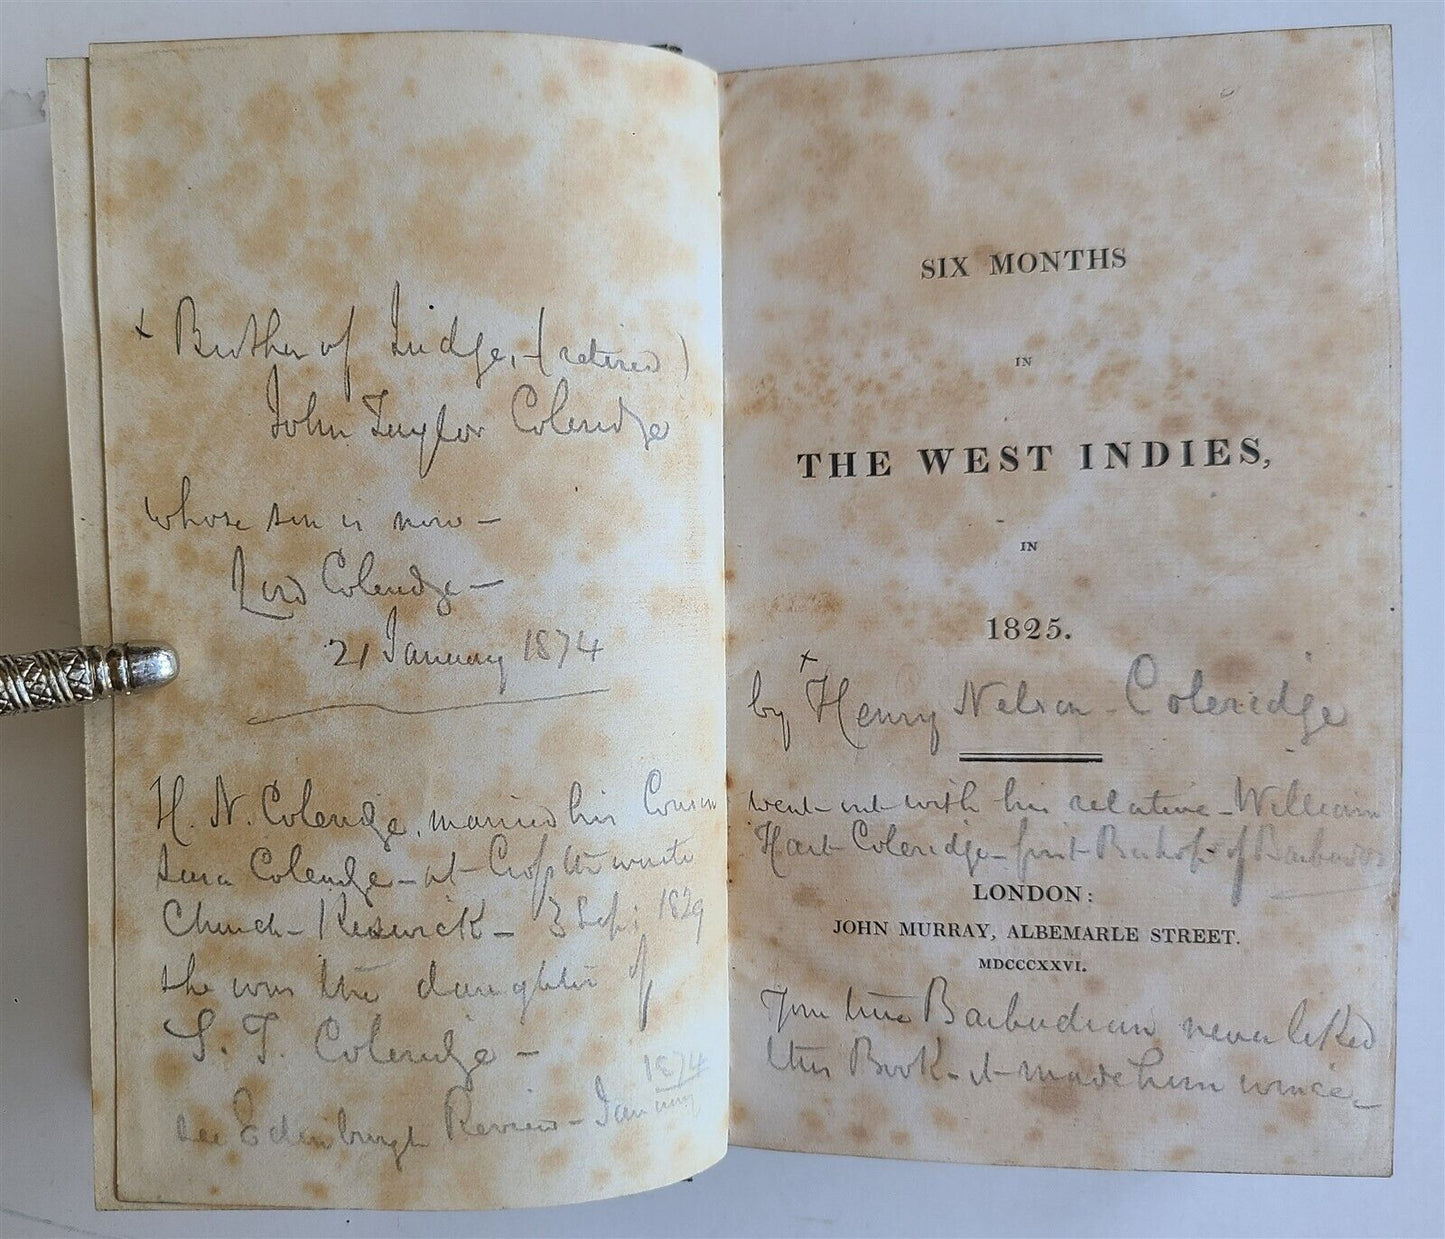 + Brother of Judge, - (retired)
John Taylor Coleridge
whose son is now -
Lord Coleridge -
21 January 1874
H. N. Coleridge, married his Cousin
Sara Coleridge - at - Crosthwaite
Church - Keswick - 3 Sep: 1829
she was the daughter of
S. T. Coleridge -
see Edinburgh Review - January 1874
SIX MONTHS
IN
THE WEST INDIES,
IN
1825.
by + Henry Nelson - Coleridge
went out with his relative - William
Hart Coleridge - first Bishop of Barbados
LONDON:
JOHN MURRAY, ALBEMARLE STREET.
MDCCCXXVI.
true Barbadian never liked
this Book - it made him wince -